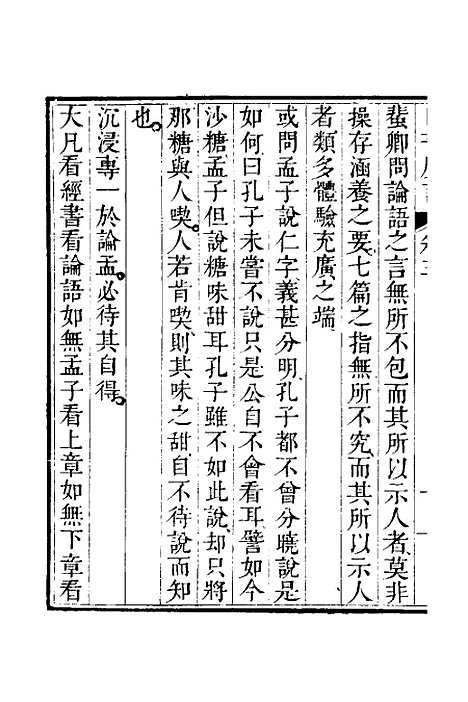 蜚卿問論語之言無所不包而其所以示人者莫非
操存涵養之要七篇之指無所不究而其所以示人
者類多體驗充廣之端
或問孟子說仁字義甚分明孔子都不曾分曉說是
如何曰孔子未嘗不說只是公自不會看耳譬如今
沙糖孟子但說糖味甜耳孔子雖不如此說却只將
那糖與人喫人若肯喫則其味之甜自不待說而知
也
沉浸專一於論孟必待其自得
大凡看經書看論語如無孟子看上章如無下章看